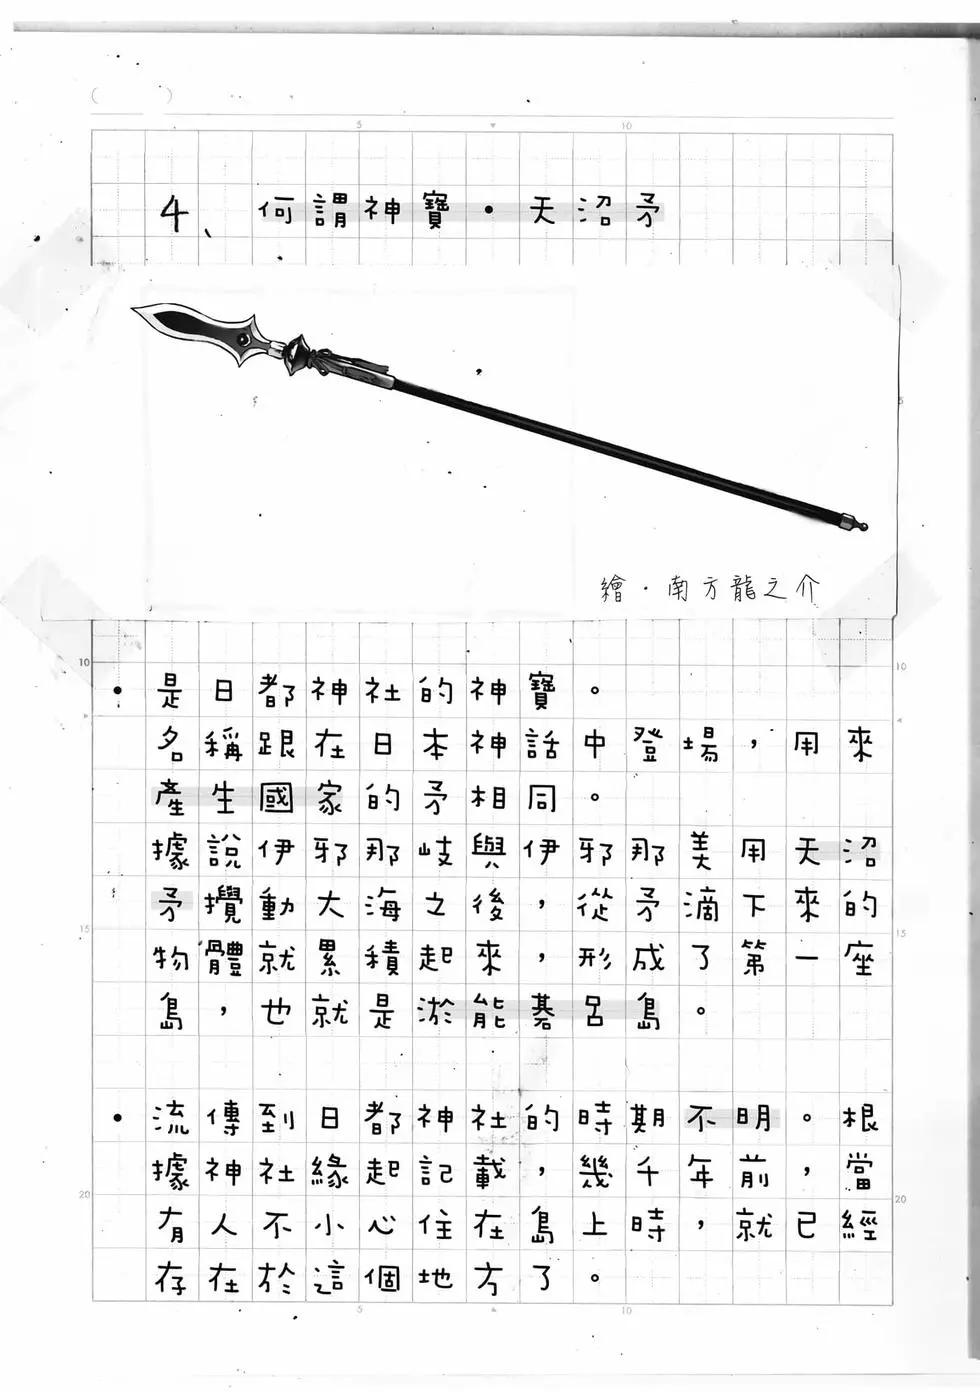 ( )
5 10
4、何謂神寶・天沼矛
5
繪・南方龍之介
10 10
・是日都神社的神寶。
名稱跟在日本神話中登場，用來
產生國家的矛相同。
據說伊邪那岐與伊邪那美用天沼
矛攪動大海之後，從矛滴下來的
15 15
物體就累積起來，形成了第一座
島，也就是淤能碁呂島。
・流傳到日都神社的時期不明。根
據神社緣起記載，幾千年前，當
20 20
有人不小心住在島上時，就已經
存在於這個地方了。
5 10